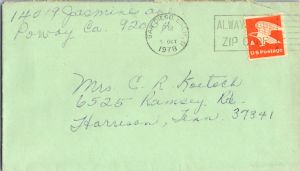 14019 Jasmine
Poway Ca. 920
SAN DIEGO
PM
OCT
1978
ALWAY
ZIP CO
A
US Postage
Mrs C. R. Koetsch
6525 Ramsey Rd.
Harrison, Tenn. 37341